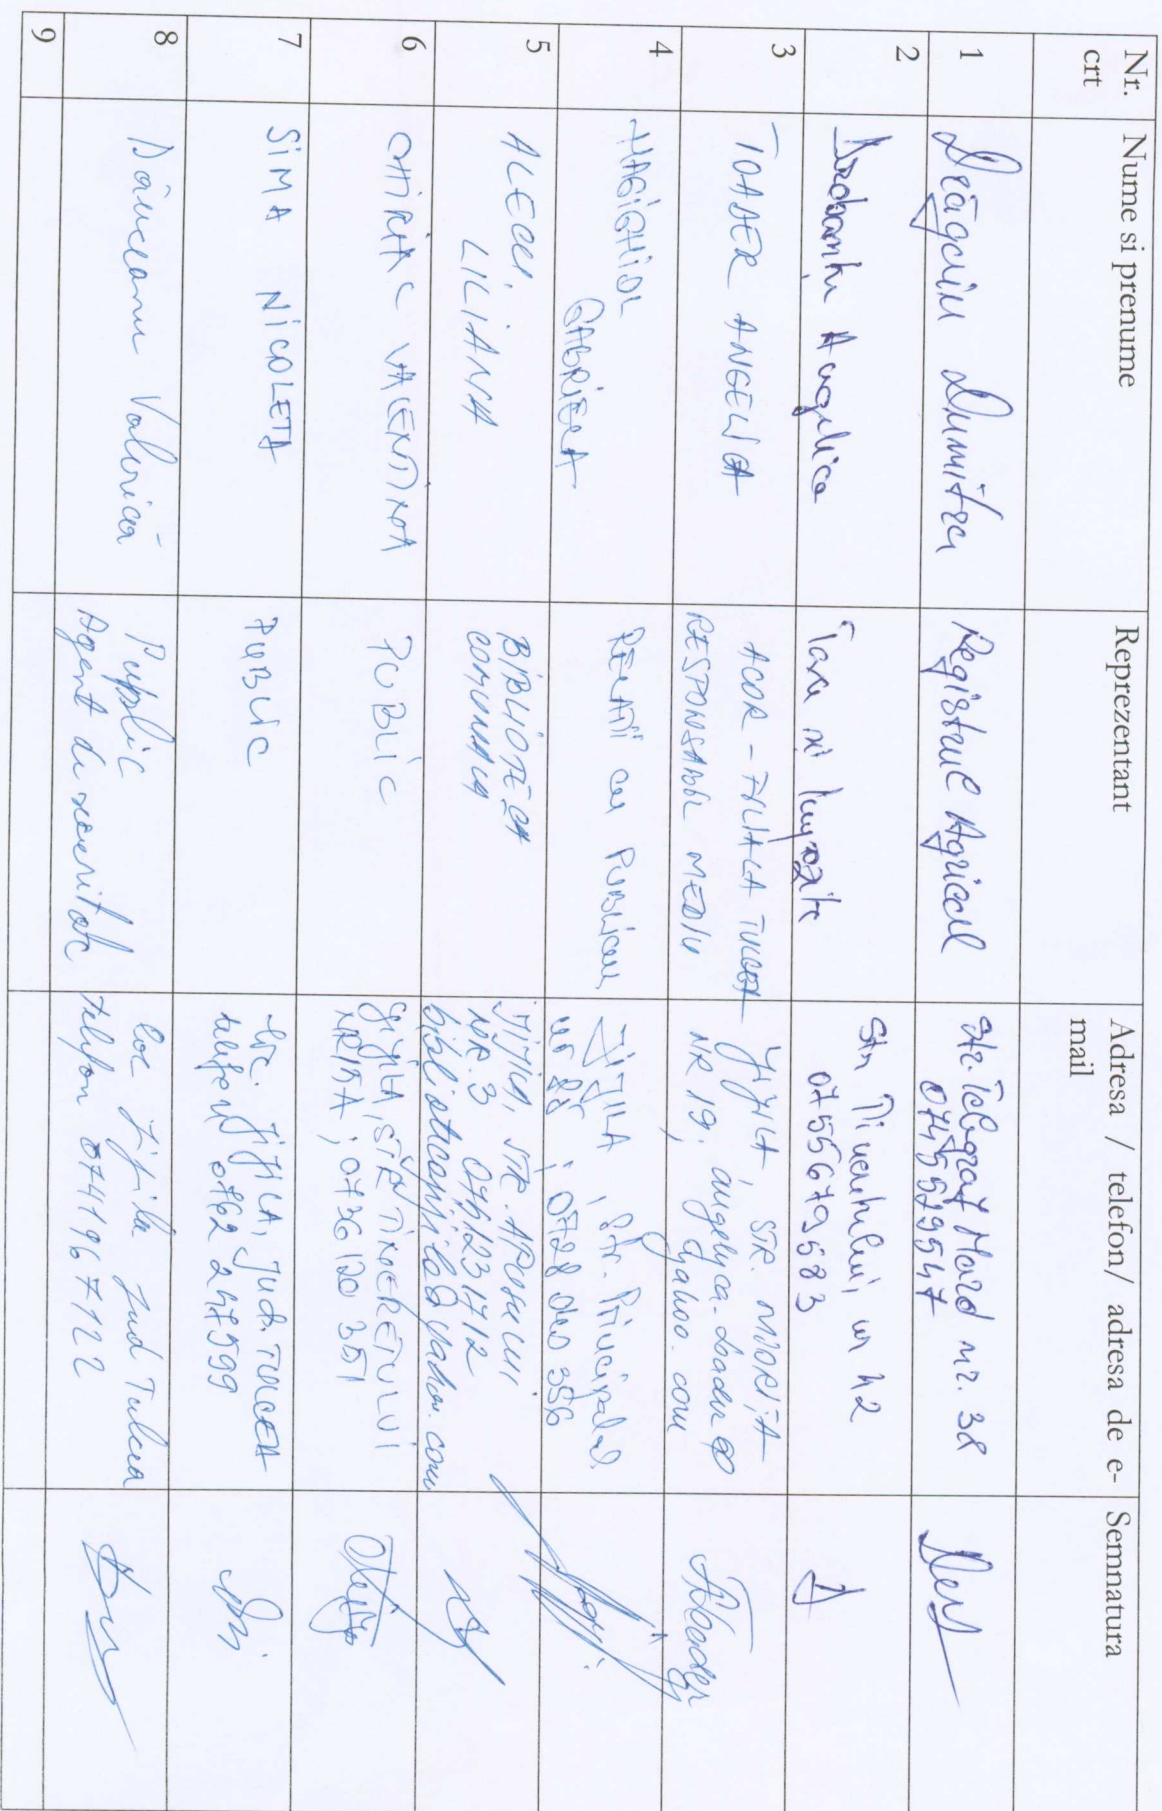 Nr. crt
Nume si prenume
Reprezentant
Adresa / telefon/ adresa de e-mail
Semnatura
1
Drăgciu Dumitru
Registrul Agricol
Str. Telegraf Mard nr. 38
0745529547
2
Angelica
Taxe si Impozite
Str Tineretului nr 42
0755679583
3
TOADER ANGELICA
ACOR - FILIALA TULCEA
RESPONSABIL MEDIU
JIJILA, STR. MIORIȚA
NR 19,
yahoo.com
4
HAGIGHIOL
GABRIELA
RELATII cu PUBLICUL
JIJILA, Str. Principala
5
ALECU
LILIANA
BIBLIOTECA
COMUNALA
JIJILA, STR.
NR. 3 0751231712
bibliotecajijila@yahoo.com
6
CHIRIAC VALENTINA
PUBLIC
JIJILA, STR TINERETULUI
NR 15A; 0736120351
7
SIMA NICOLETA
PUBLIC
Loc. JIJILA, Jud. TULCEA
telefon 0762247599
8
Dănceanu Valerică
Public
Agent de securitate
loc Jijila jud Tulcea
telefon 0741967122
9